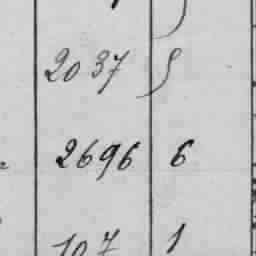 2037
2696 6
107 1